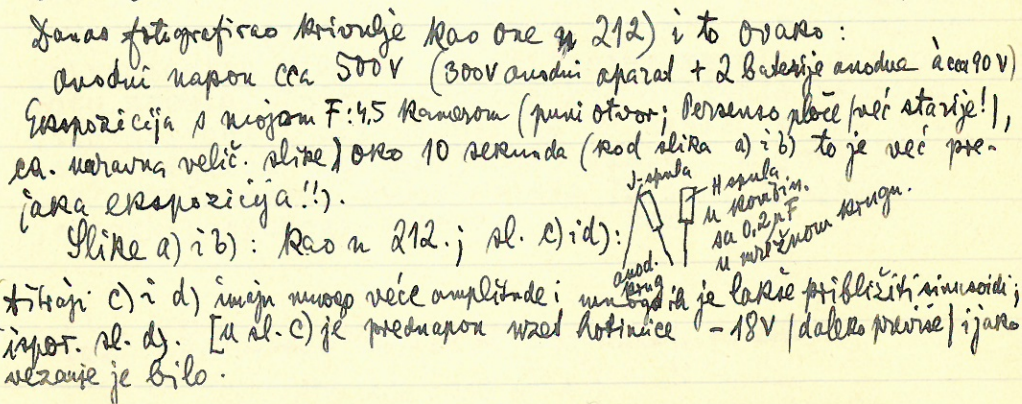 Danas fotografirao krivulje kao one u 212) i to ovako:
anodni napon cca 500V (300V anodni aparat + 2 baterije anodne à cca 90V)
Ekspozicija s mojom F:4,5 kamerom (puni otvor; Persenso ploče (već starije!),
ca. naravna velič. slike) oko 10 sekunda (kod slika a) i b) to je već pre-
jaka ekspozicija!!).
J-spula
H spula
u kombin.
sa 0,2μF
u mrežnom krugu.
Slike a) i b): kao u 212.; sl. c) i d):
anod.
krug
titraji c) i d) imaju mnogo veće amplitude i mnogo ih je lakše približiti sinusoidi;
ispor. sl. d). [u sl. c) je prednapon uzed hotimice -18V (daleko previše) i jako
vezanje je bilo.